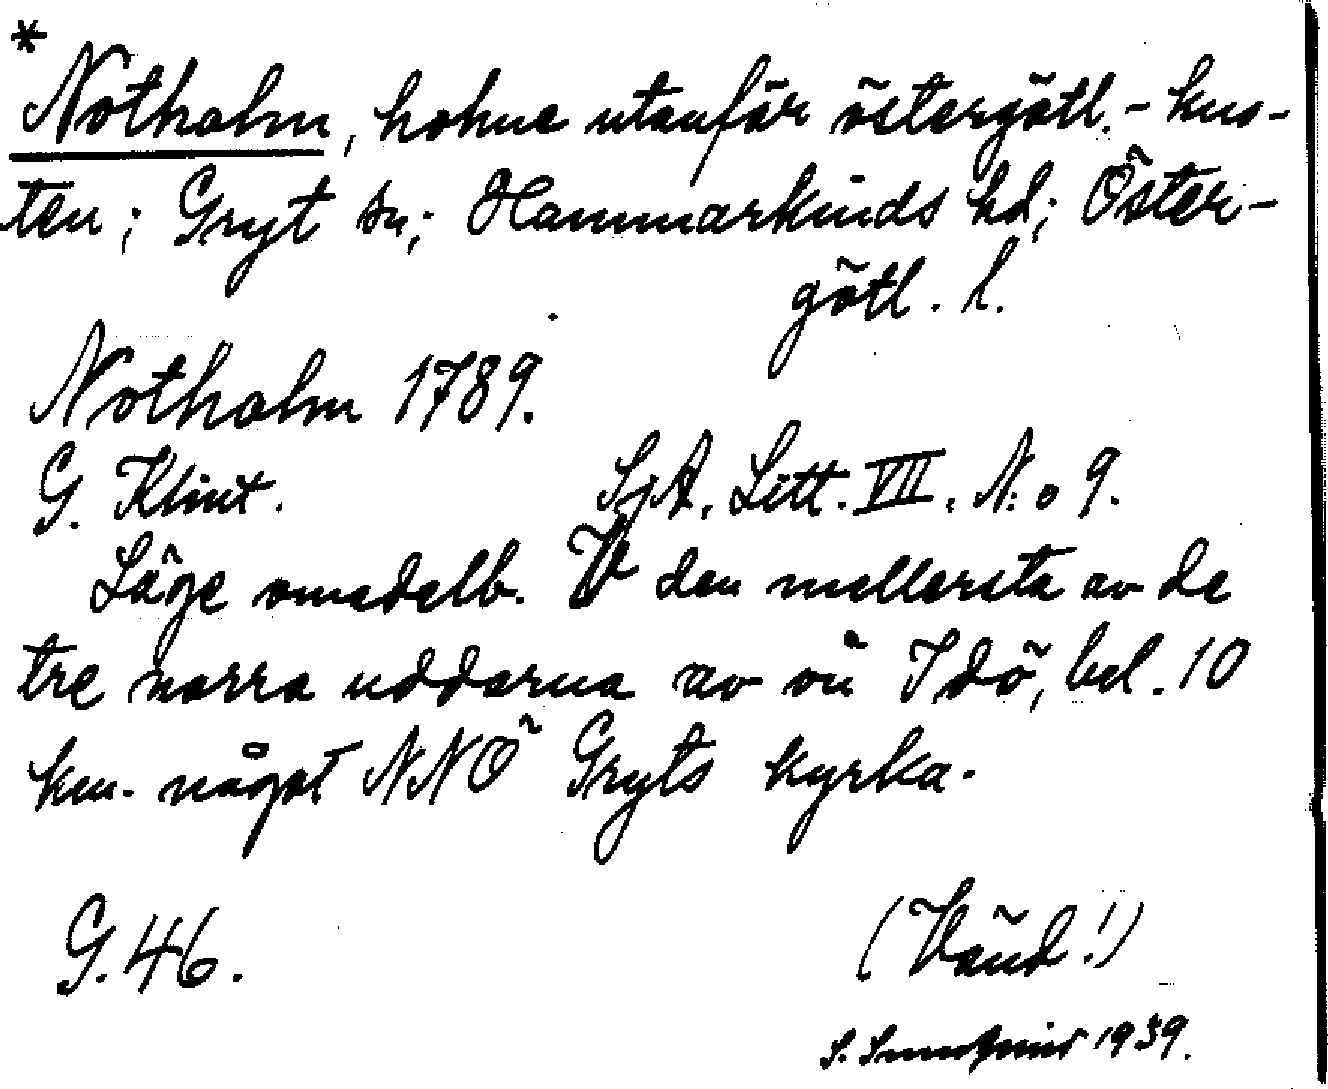 *
Notholm, holme utanför östergötl.-kus-
ten; Gryt sn; Hammarkinds hd; Öster-
götl. l.
Notholm 1789.
G. Klint. SjA. Litt. VII. N:o 9.
Läge omedelb. V den mellersta av de
tre norra uddarna av ön Idö, bel. 10
km. något NNÖ Gryts kyrka.
G. 46. (Vänd!)
S. 1939.